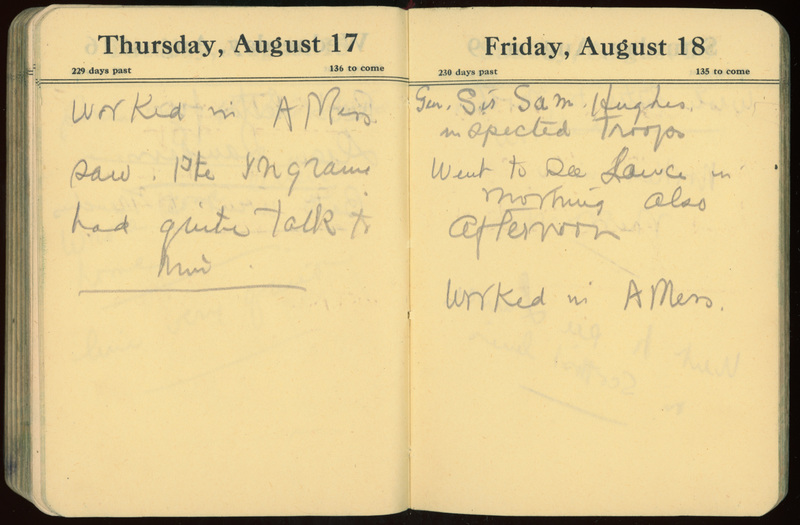 Thursday, August 17
229 days past
136 to come
Worked in A Mess.
saw. Pte Ingram
had quite talk to
him.
Friday, August 18
230 days past
135 to come
Gen. Sir Sam. Hughes.
inspected Troops
Went to see Lance in
morning also
Afternoon
Worked in A Mess.